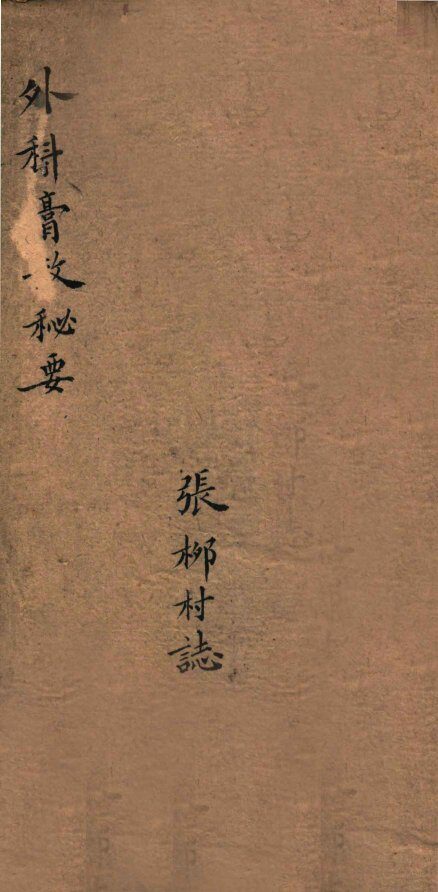 外科膏散秘要
張柳村誌